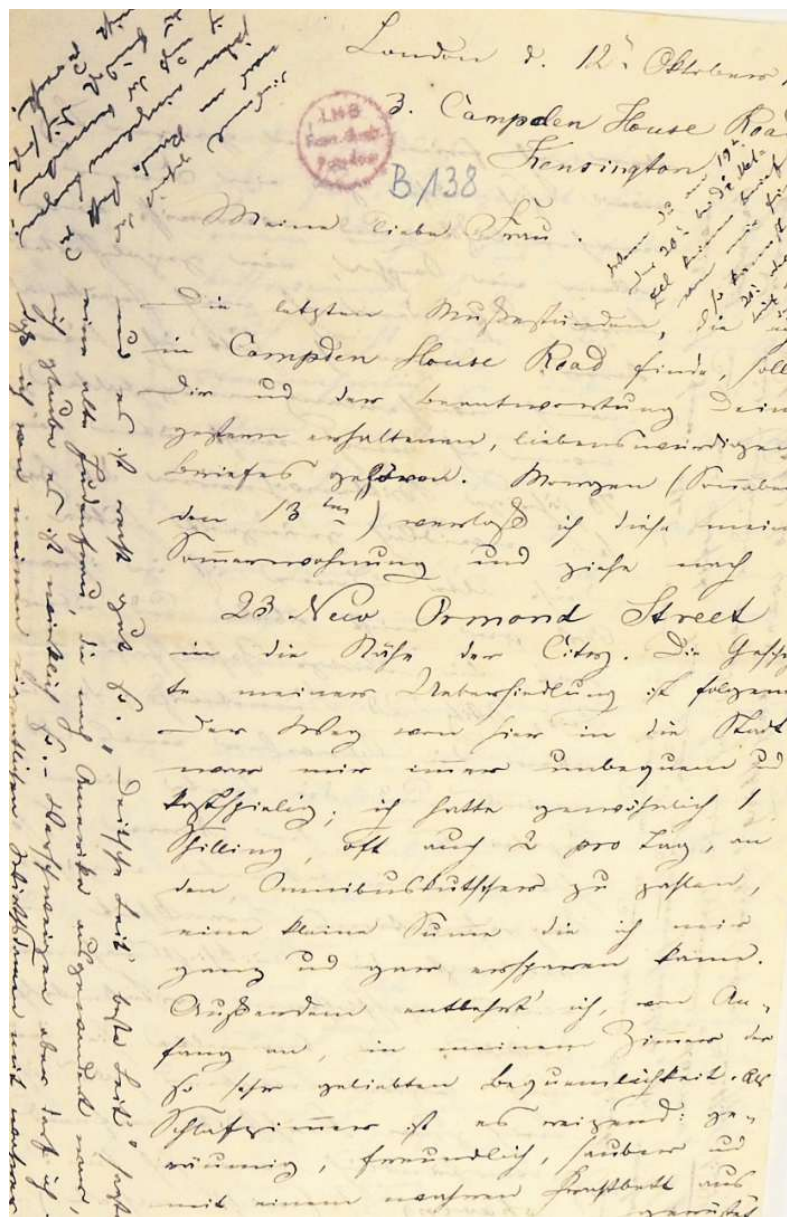 London d. 12t Oktobers
3. Campden House Road
Kensington
LHB
Potsdam
B,138
Meine liebe Frau.
Die letzten Mußestunden, die ich
in Campden House Road finde, soll
Dir und der Beantwortung Dein
gestern erhaltenen, liebenswürdigen
Briefes gehören. Morgen (Sonnaben
den 13ten) verlaß ich diese mein
Sommerwohnung und ziehe nach
23 New Ormond Street
in die Nähe der City. Die Geschich
te meiner Uebersiedlung ist folgen
Der Weg von hier in die Stadt
war mir immer unbequem und
kostspielig; ich hatte gewöhnlich 1
Shilling, oft auch 2 pro Tag, an
den Omnibuskutscher zu zahlen,
eine kleine Summe die ich mir
ganz und gar ersparen kann.
Außerdem entbehrt' ich, von An-
fang an, in meinem Zimmer der
so sehr geliebten Bequemlichkeit. Als
Schlafzimmer ist es reizend: ge-
räumig, freundlich, sauber und
mit einem wahren Prachtbett aus
gerüstet
und es ist recht gut so. "Deitsche Leit' beste Leit'" sagte
eine alte Judenfrau, die nach Amerika ausgewandert war,
ich glaube es ist wirklich so. – Verschweigen aber darf ich
daß ich von meinen eigentlichen Wirthsdamen mit wahrer